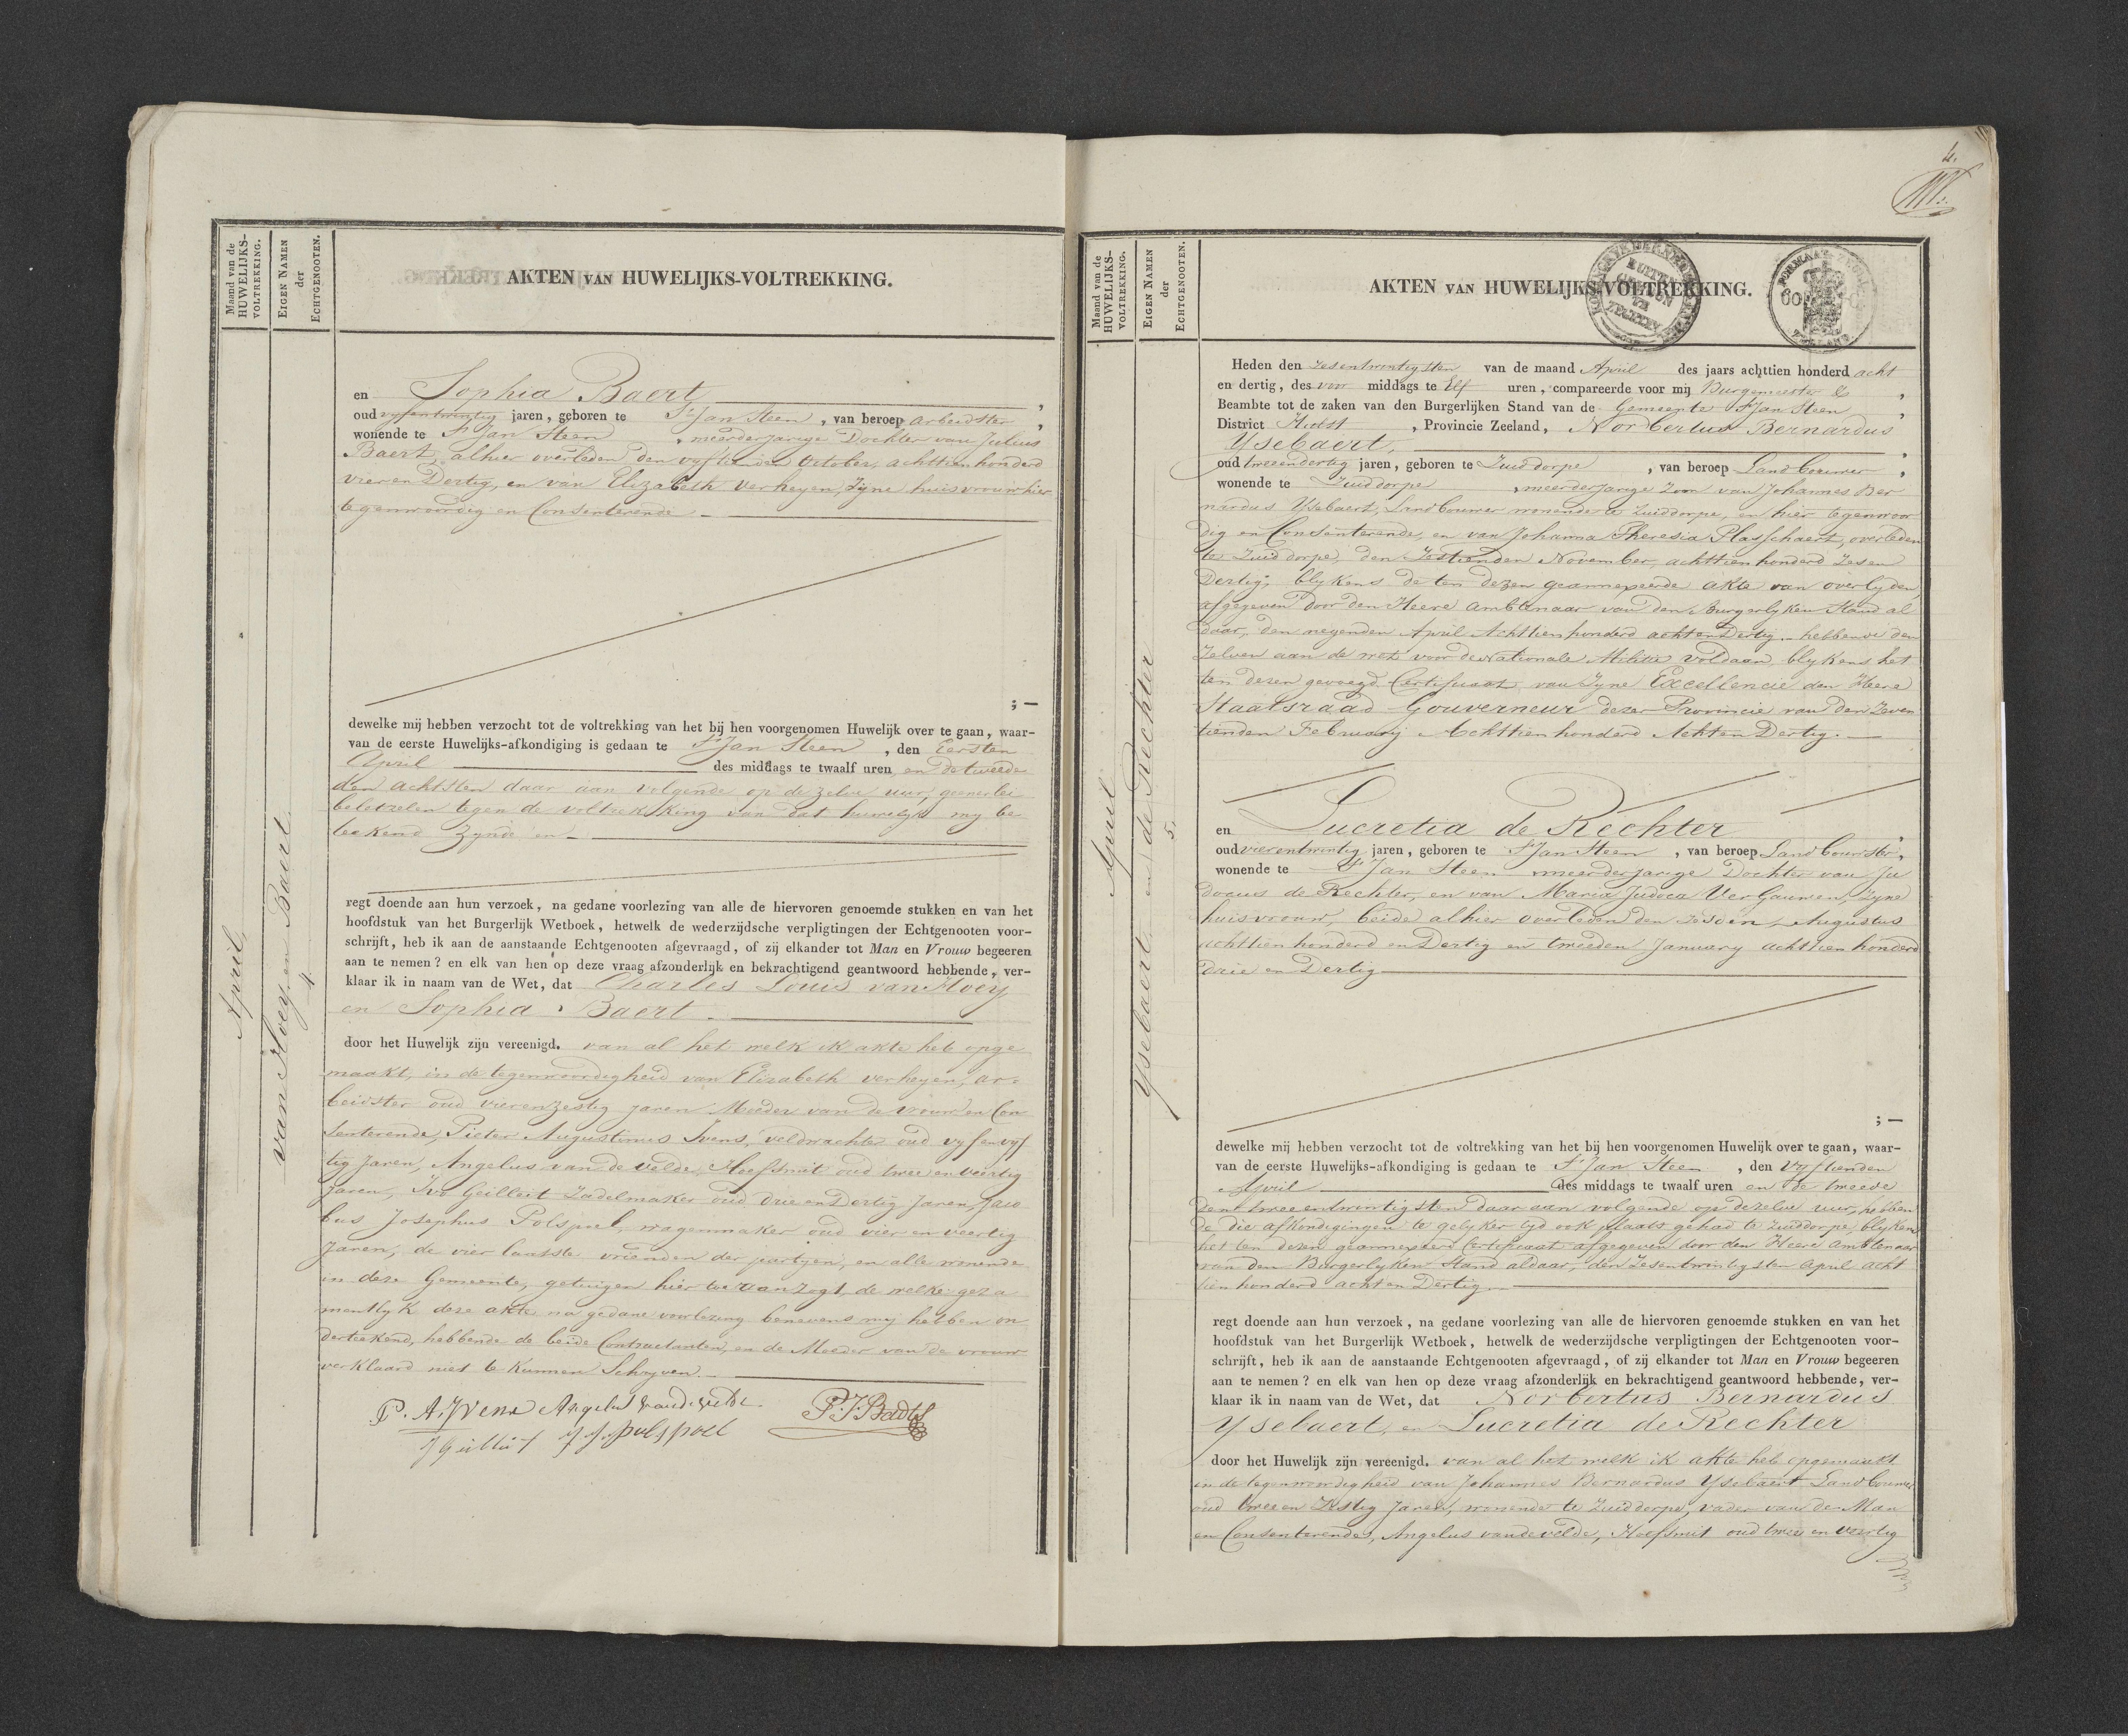 Maand van de
HUWELIJKS-
VOLTREKKING.
EIGEN NAMEN
der
ECHTGENOOTEN.
AKTEN VAN HUWELIJKS-VOLTREKKING.
April
van Hoey en Baert
4.
en Sophia Baert,
oud vyfentwintig jaren, geboren te St Jan Steen, van beroep arbeidster,
wonende te St Jan Steen, meerderjarige Dochter van Julius
Baert, alhier overleden den vyftienden October, achttien honderd
vier en Dertig, en van Elizabeth Verheyen, Zyne huisvrouw hier
tegenwoordig en Consenterende –
; –
dewelke mij hebben verzocht tot de voltrekking van het bij hen voorgenomen Huwelijk over te gaan, waar-
van de eerste Huwelijks-afkondiging is gedaan te St Jan Steen, den Eersten
April des middags te twaalf uren en de tweede
den achtsten daar aan volgende op de zelve uur, geenerlei
beletzelen tegen de voltrekking van dat huwelyk my be
teekend zynde en –
regt doende aan hun verzoek, na gedane voorlezing van alle de hiervoren genoemde stukken en van het
hoofdstuk van het Burgerlijk Wetboek, hetwelk de wederzijdsche verpligtingen der Echtgenooten voor-
schrijft, heb ik aan de aanstaande Echtgenooten afgevraagd, of zij elkander tot Man en Vrouw begeeren
aan te nemen? en elk van hen op deze vraag afzonderlijk en bekrachtigend geantwoord hebbende, ver-
klaar ik in naam van de Wet, dat Charles Louis van Hoey
en Sophia Baert.
door het Huwelijk zijn vereenigd. van al het welk ik akte heb opge
maakt, in de tegenwoordigheid van Elizabeth verheyen, ar-
beidster oud vierenzestig jaren Moeder van de vrouw en Con
senterende, Pieter Augustinus Ivens, veldwachter oud vyf en vyf
tig Jaren, Angelus van de velde, Hoefsmit oud twee en veertig
Jaren, Ivo Geilleit Zadelmaker oud drie en Dertig Jaren, Jaco
bus Josephus Polspoel, wagenmaker oud vier en veertig
Jaren, de vier laatste vrienden der partyen, en alle wonende
in deze Gemeente, getuigen hier toe van zogt, de welke geza
mentlyk deze akte na gedane voorlezing benevens my hebben on
derteekend, hebbende de beide Contractanten, en de Moeder van de vrouw
verklaard niet te kunnen Schryven. –
P. A. Ivens Angelus vande velde P. J. Badts
J. J. polspoel
4.
Maand van de
HUWELIJKS-
VOLTREKKING.
EIGEN NAMEN
der
ECHTGENOOTEN.
AKTEN VAN HUWELIJKS-VOLTREKKING.
April
Ysebaert en de Rechter
5.
Heden den zesentwintigsten van de maand April des jaars achttien honderd acht
en dertig, des voor middags te Elf uren, compareerde voor mij Burgemeester &
Beambte tot de zaken van den Burgerlijken Stand van de Gemeente St Jan Steen,
District Hulst, Provincie Zeeland, Norbertus Bernardus
Ysebaert,
oud tweeendertig jaren, geboren te Zuiddorpe, van beroep Landbouwer,
wonende te Zuiddorpe, meerderjarige Zoon van Johannes Ber
nardus Ysebaert, Landbouwer wonende te Zuiddorpe, en hier tegenwoor
dig en Consenterende, en van Johanna Theresia Plasschaert, overleden
te Zuiddorpe, den Zestienden November, achttien honderd Zes en
Dertig; blykens de ten dezen geannexeerde akte van overlyden,
afgegeven door den Heere Ambtenaar van den Burgerlyken Stand al
daar, den negenden April Achttien honderd acht en Dertig. – hebbende den
Zelven aan de wet voor de Nationale Militie voldaan blykens het
ten dezen gevoegd Certificaat van Zyne Excellencie den Heere
Staatsraad Gouverneur dezer Provincie van den Zeven
tienden February Achttien honderd Acht en Dertig. –
en Lucretia de Rechter,
oud vierentwintig jaren, geboren te St Jan Steen, van beroep Landbouwster,
wonende te St Jan Steen meerderjarige Dochter van Ju
docus de Rechter, en van Maria Judoca VerGauwen, Zyne
huisvrouw, beide alhier overleden den zesden Augustus
achttien honderd en Dertig en tweeden January achttien honderd
drie en Dertig
; –
dewelke mij hebben verzocht tot de voltrekking van het bij hen voorgenomen Huwelijk over te gaan, waar-
van de eerste Huwelijks-afkondiging is gedaan te St Jan Steen, den Vyftienden
April des middags te twaalf uren en de tweede
den tweeentwintigsten daar aan volgende op dezelve uur, hebben
de die afkondigingen te gelyker tyd ook plaats gehad te Zuiddorpe, blykens
het ten dezen geannexeerd Certificaat afgegeven door den Heere Ambtenaar
van den Burgerlyken Stand aldaar, den Zesentwintigsten April acht
tien honderd acht en Dertig. –
regt doende aan hun verzoek, na gedane voorlezing van alle de hiervoren genoemde stukken en van het
hoofdstuk van het Burgerlijk Wetboek, hetwelk de wederzijdsche verpligtingen der Echtgenooten voor-
schrijft, heb ik aan de aanstaande Echtgenooten afgevraagd, of zij elkander tot Man en Vrouw begeeren
aan te nemen? en elk van hen op deze vraag afzonderlijk en bekrachtigend geantwoord hebbende, ver-
klaar ik in naam van de Wet, dat Norbertus Bernardus
Ysebaert, en Lucretia de Rechter
door het Huwelijk zijn vereenigd. van al het welk ik akte heb opgemaakt
in de tegenwoordigheid van Johannes Bernardus Ysebaert Landbouwer
oud twee en Zestig Jaren, wonende te Zuiddorpe, vader van de Man
en Consenterende, Angelus vandevelde, Hoefsmit oud twee en veertig